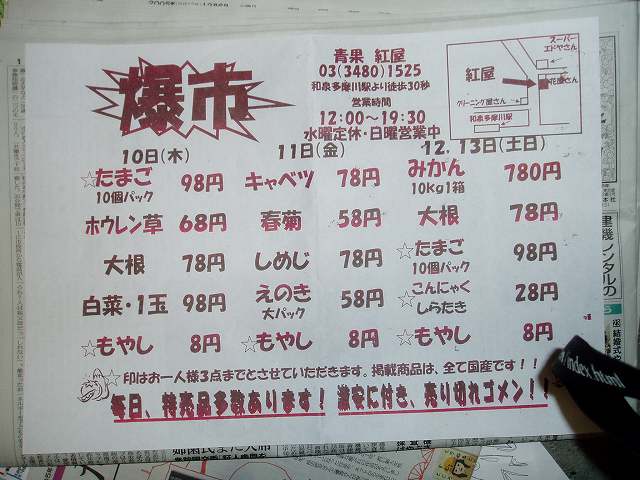 爆市
青果 紅屋
03(3480)1525
和泉多摩川駅より徒歩30秒
営業時間
12:00〜19:30
水曜定休・日曜営業中
スーパー
エドヤさん
紅屋
花屋さん
クリーニング屋さん
和泉多摩川駅
10日(木)
☆たまご 98円
10個パック
ホウレン草 68円
大根 78円
白菜・1玉 98円
☆もやし 8円
11日(金)
キャベツ 78円
春菊 58円
しめじ 78円
えのき 58円
大パック
☆もやし 8円
12、13日(土日)
みかん 780円
10kg1箱
大根 78円
☆たまご 98円
10個パック
☆こんにゃく 28円
しらたき
☆もやし 8円
☆印はお一人様3点までとさせていただきます。掲載商品は、全て国産です!!
毎日、特売品多数あります! 激安に付き、売り切れゴメン!!
/index.html